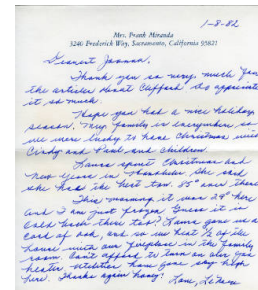 1-8-82
Mrs. Frank Miranda
3240 Frederick Way, Sacramento, California 95821
Dearest Joanna,
Thank you so very much for
the articles about Clifford. I do appreciate
it so much.
Hope you had a nice holiday
season. My family is everywhere so
we were lucky to have Christmas with
Cindy and Paul and children.
spent Christmas and
New Years in She said
she had the best tan. 85° over there
This morning it was 29° here
and I am just frozen. Guess it is
cold back there too. gave me a
cord of oak, and so we heat ½ of the
house with our fireplace in the family
room. Can't afford to turn on our gas
heater. Utilities have gone sky high
here. Thanks again honey! Love,